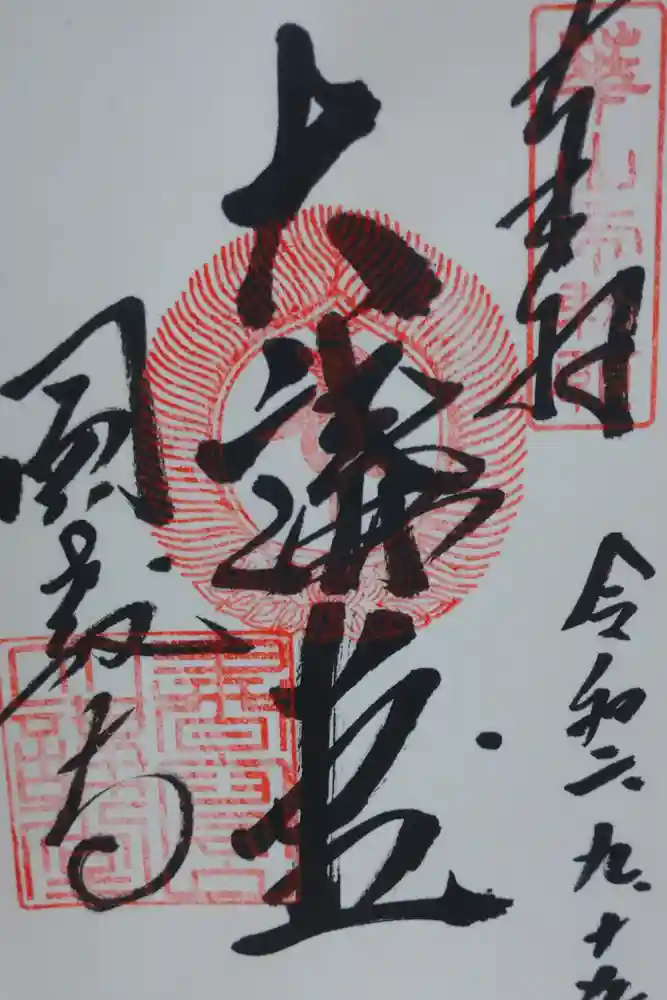 奉拝
令和二.九.十九
大講堂
圓教寺